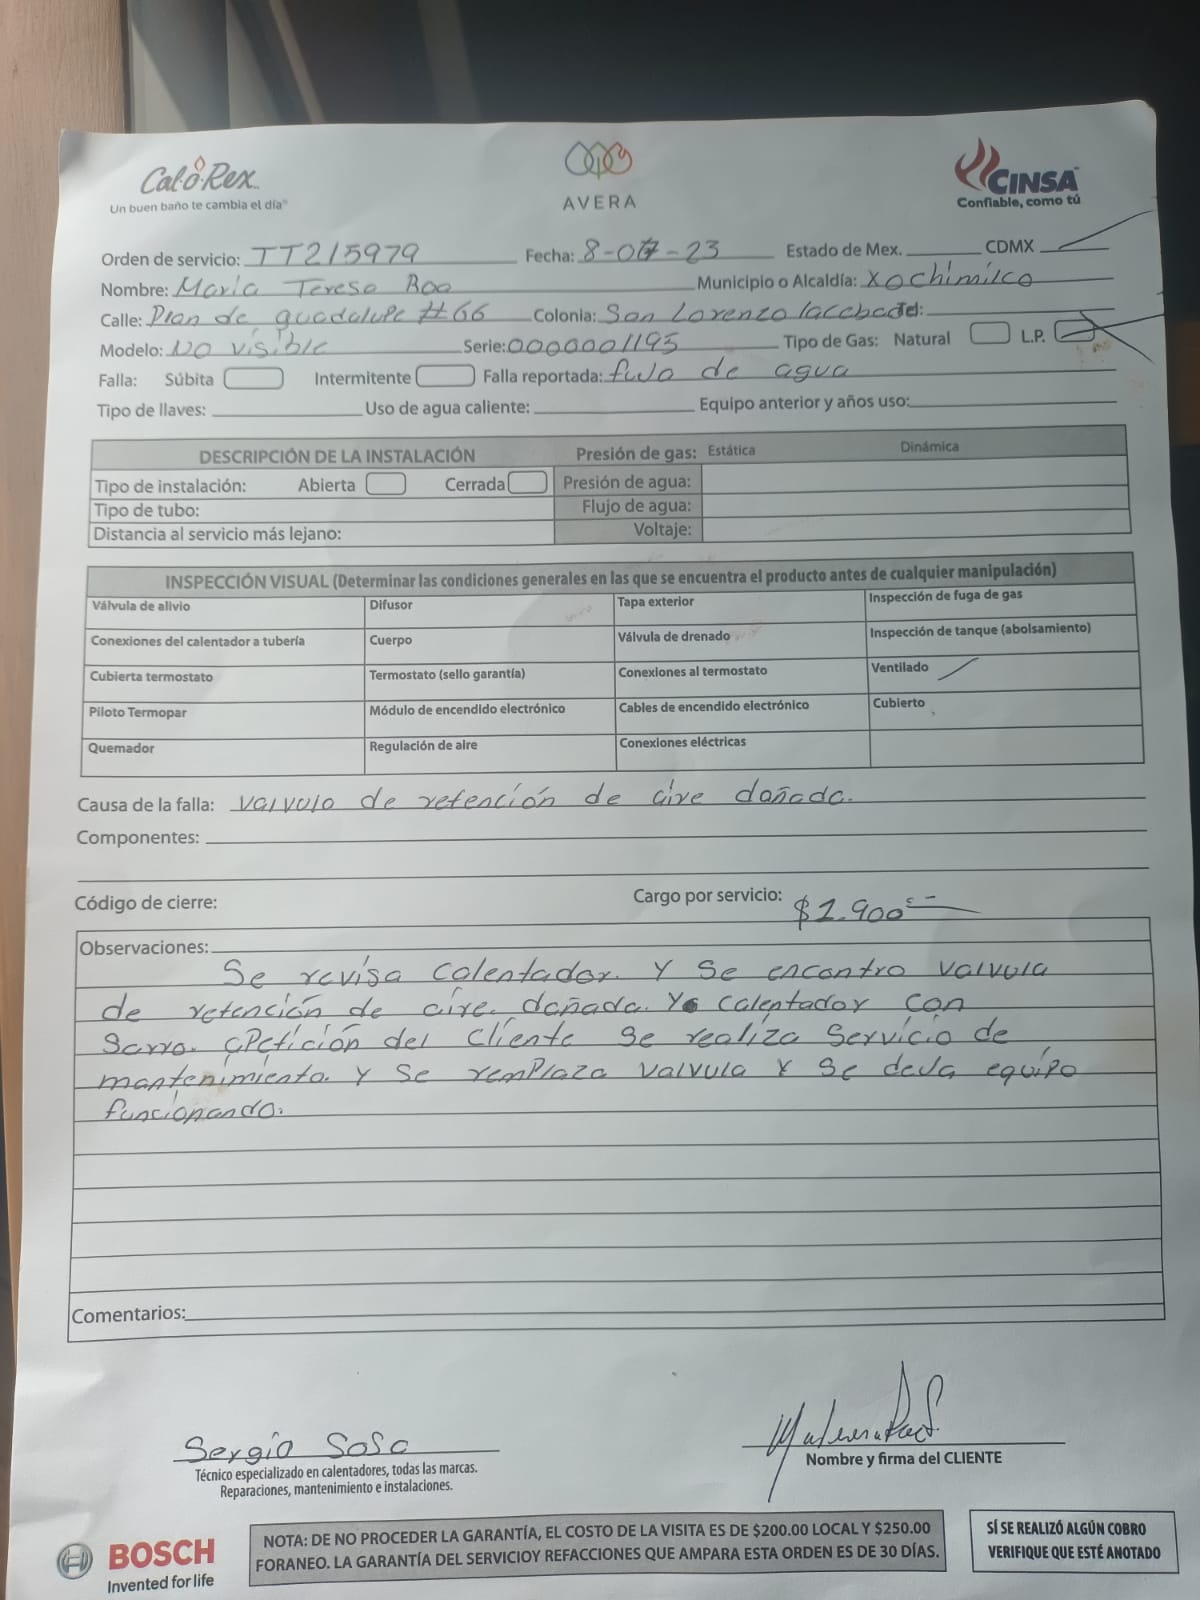 Cal-o-Rex
Un buen baño te cambia el día
AVERA
CINSA
Confiable, como tú
Orden de servicio: TT215979 Fecha: 8-07-23 Estado de Mex. CDMX
Nombre: María Teresa Roa Municipio o Alcaldía: Xochimilco
Calle: Plan de guadalupe #66 Colonia: San Lorenzo Tel:
Modelo: No visible Serie: 0000001195 Tipo de Gas: Natural L.P.
Falla: Súbita Intermitente Falla reportada: fujo de agua
Tipo de llaves: Uso de agua caliente: Equipo anterior y años uso:
DESCRIPCIÓN DE LA INSTALACIÓN Presión de gas: Estática Dinámica
Tipo de instalación: Abierta Cerrada Presión de agua:
Tipo de tubo: Flujo de agua:
Distancia al servicio más lejano: Voltaje:
INSPECCIÓN VISUAL (Determinar las condiciones generales en las que se encuentra el producto antes de cualquier manipulación)
Válvula de alivio Difusor Tapa exterior Inspección de fuga de gas
Conexiones del calentador a tubería Cuerpo Válvula de drenado Inspección de tanque (abolsamiento)
Cubierta termostato Termostato (sello garantía) Conexiones al termostato Ventilado
Piloto Termopar Módulo de encendido electrónico Cables de encendido electrónico Cubierto
Quemador Regulación de aire Conexiones eléctricas
Causa de la falla: valvula de retención de aire dañada.
Componentes:
Código de cierre: Cargo por servicio: $1.900
Observaciones:
Se revisa calentador. Y se encontro valvula
de retención de aire. dañada. Y calentador con
Sarro. aPetición del cliente se realiza Servicio de
mantenimiento. Y se remplaza valvula Y se deja equipo
funcionando.
Comentarios:
Sergio Sosa
Técnico especializado en calentadores, todas las marcas.
Reparaciones, mantenimiento e instalaciones.
Nombre y firma del CLIENTE
BOSCH
Invented for life
NOTA: DE NO PROCEDER LA GARANTÍA, EL COSTO DE LA VISITA ES DE $200.00 LOCAL Y $250.00
FORANEO. LA GARANTÍA DEL SERVICIOY REFACCIONES QUE AMPARA ESTA ORDEN ES DE 30 DÍAS.
SÍ SE REALIZÓ ALGÚN COBRO
VERIFIQUE QUE ESTÉ ANOTADO